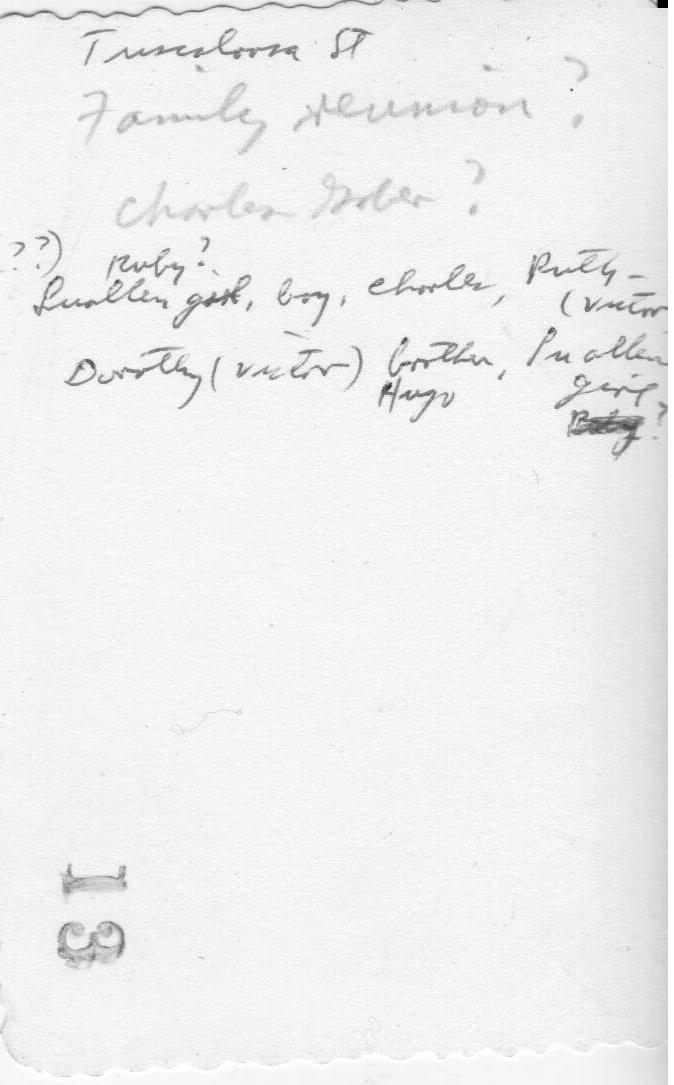 Tuscaloosa ST
Family reunion?
Charles Gober?
??) Ruby?
Suallen girl, boy, Charles, Ruth-
(Victor
Dorothy (Victor) brother, Suallen
Hugo girl
?
13